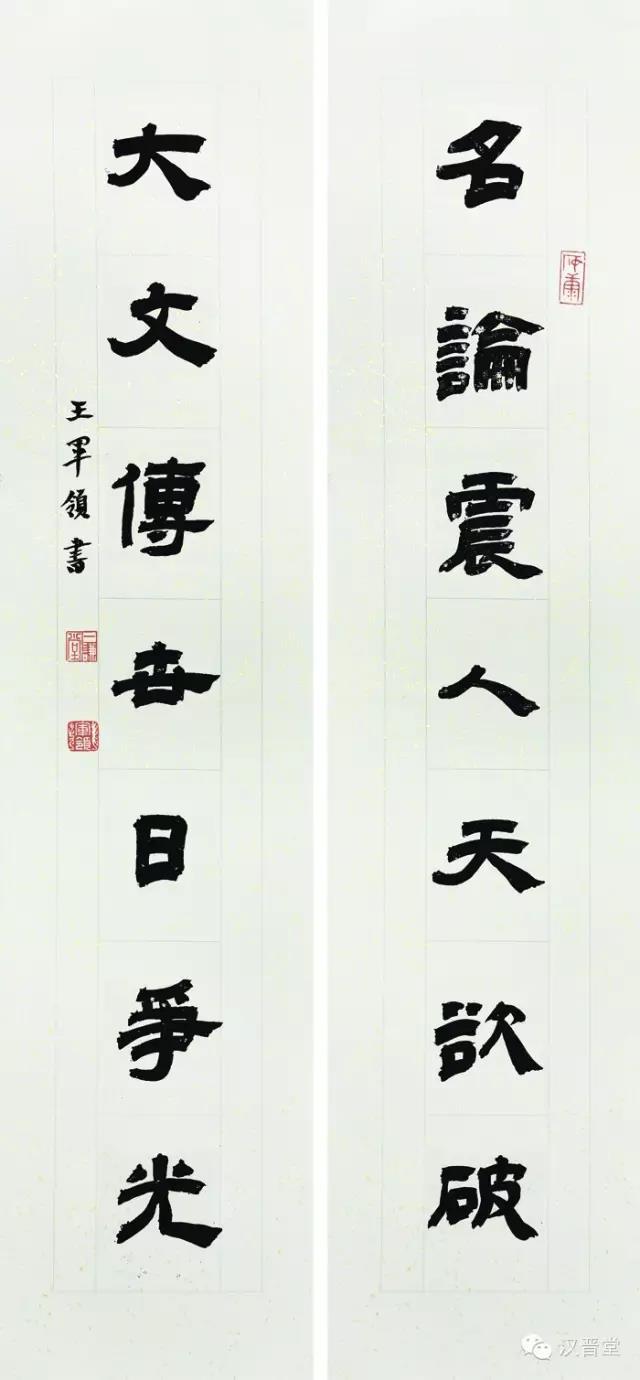 名論震人天欲破
大文傳世日爭光
王軍領書
汉晋堂